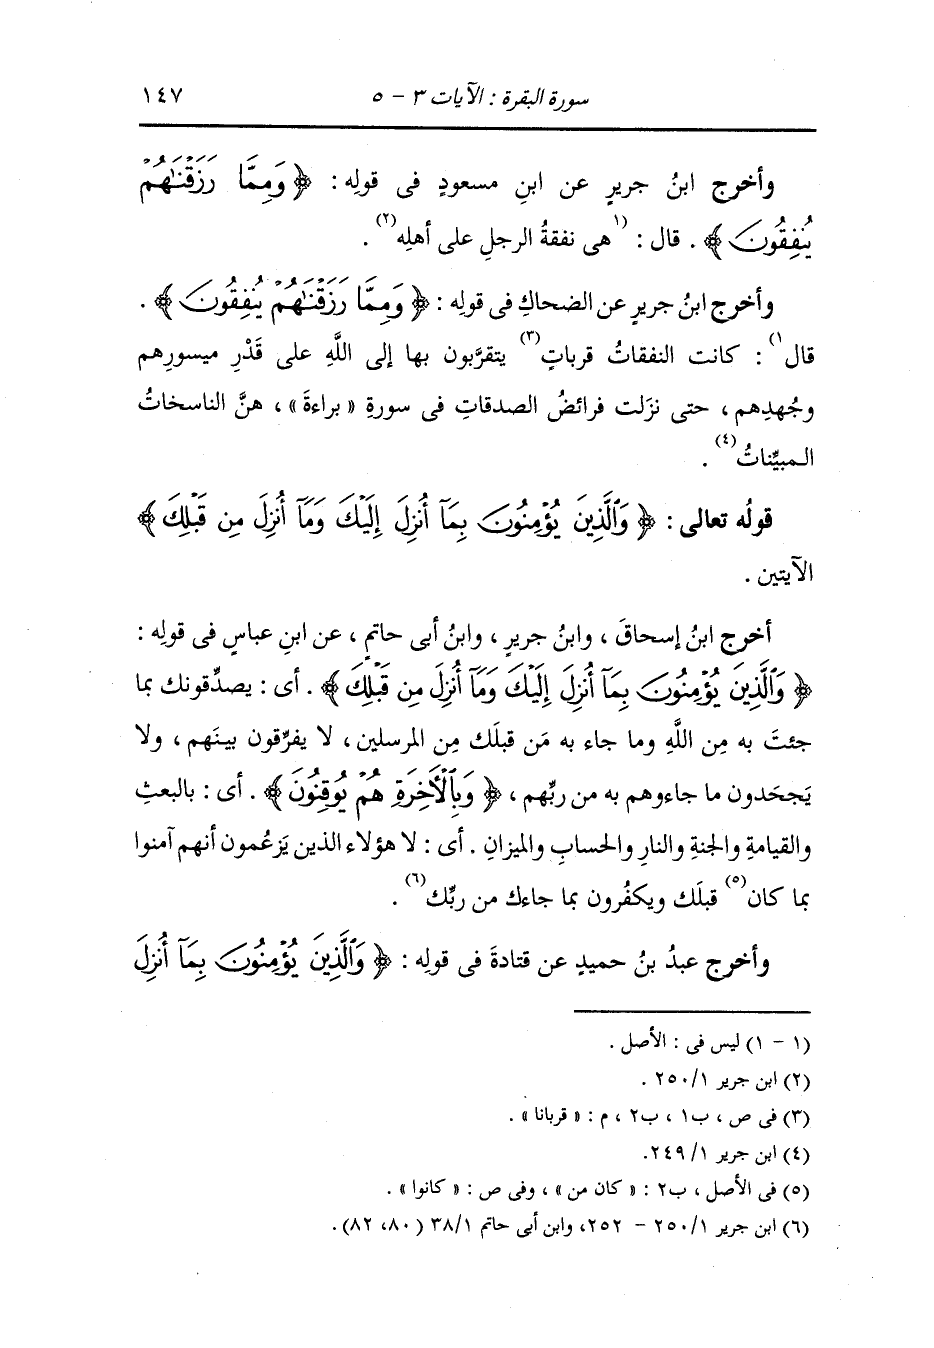 سورة البقرة : الآيات ٣ - ٥ ١٤٧
وأخرج ابنُ جريرٍ عن ابنِ مسعودٍ فى قولِه : ﴿ وَمِمَّا رَزَقْنَٰهُمْ
يُنفِقُونَ ﴾ . قال : (١هى نفقةُ الرجلِ على أهلِه(٢) .
وأخرج ابنُ جريرٍ عن الضحاكِ فى قولِه : ﴿ وَمِمَّا رَزَقْنَٰهُمْ يُنفِقُونَ ﴾ .
قال١) : كانت النفقاتُ قرباتٍ(٣) يتقرَّبون بها إلى اللَّهِ على قَدْرِ ميسورِهم
وجُهدِهم ، حتى نزَلت فرائضُ الصدقاتِ فى سورةِ « براءةَ » ، هنَّ الناسخاتُ
المبيِّناتُ(٤) .
قولُه تعالى : ﴿ وَٱلَّذِينَ يُؤْمِنُونَ بِمَآ أُنزِلَ إِلَيْكَ وَمَآ أُنزِلَ مِن قَبْلِكَ ﴾
الآيتين .
أخرج ابنُ إسحاقَ ، وابنُ جريرٍ ، وابنُ أبى حاتمٍ ، عن ابنِ عباسٍ فى قولِه :
﴿ وَٱلَّذِينَ يُؤْمِنُونَ بِمَآ أُنزِلَ إِلَيْكَ وَمَآ أُنزِلَ مِن قَبْلِكَ ﴾ . أى : يصدِّقونك بما
جئتَ به مِن اللَّهِ وما جاء به مَن قبلَك مِن المرسلين ، لا يفرِّقون بينَهم ، ولا
يَجحَدون ما جاءوهم به من ربِّهم ، ﴿ وَبِٱلْأَخِرَةِ هُمْ يُوقِنُونَ ﴾ . أى : بالبعثِ
والقيامةِ والجنةِ والنارِ والحسابِ والميزانِ . أى : لا هؤلاء الذين يَزعُمون أنهم آمنوا
بما كان(٥) قبلَك ويكفُرون بما جاءك من ربِّك(٦) .
وأخرج عبدُ بنُ حميدٍ عن قتادةَ فى قولِه : ﴿ وَٱلَّذِينَ يُؤْمِنُونَ بِمَآ أُنزِلَ
(١ - ١) ليس فى : الأصل .
(٢) ابن جرير ١/ ٢٥٠ .
(٣) فى ص ، ب١ ، ب٢ ، م : « قربانا » .
(٤) ابن جرير ١/ ٢٤٩.
(٥) فى الأصل ، ب٢ : « كان من » ، وفى ص : « كانوا » .
(٦) ابن جرير ١/ ٢٥٠ - ٢٥٢، وابن أبى حاتم ١/ ٣٨ (٨٠، ٨٢) .